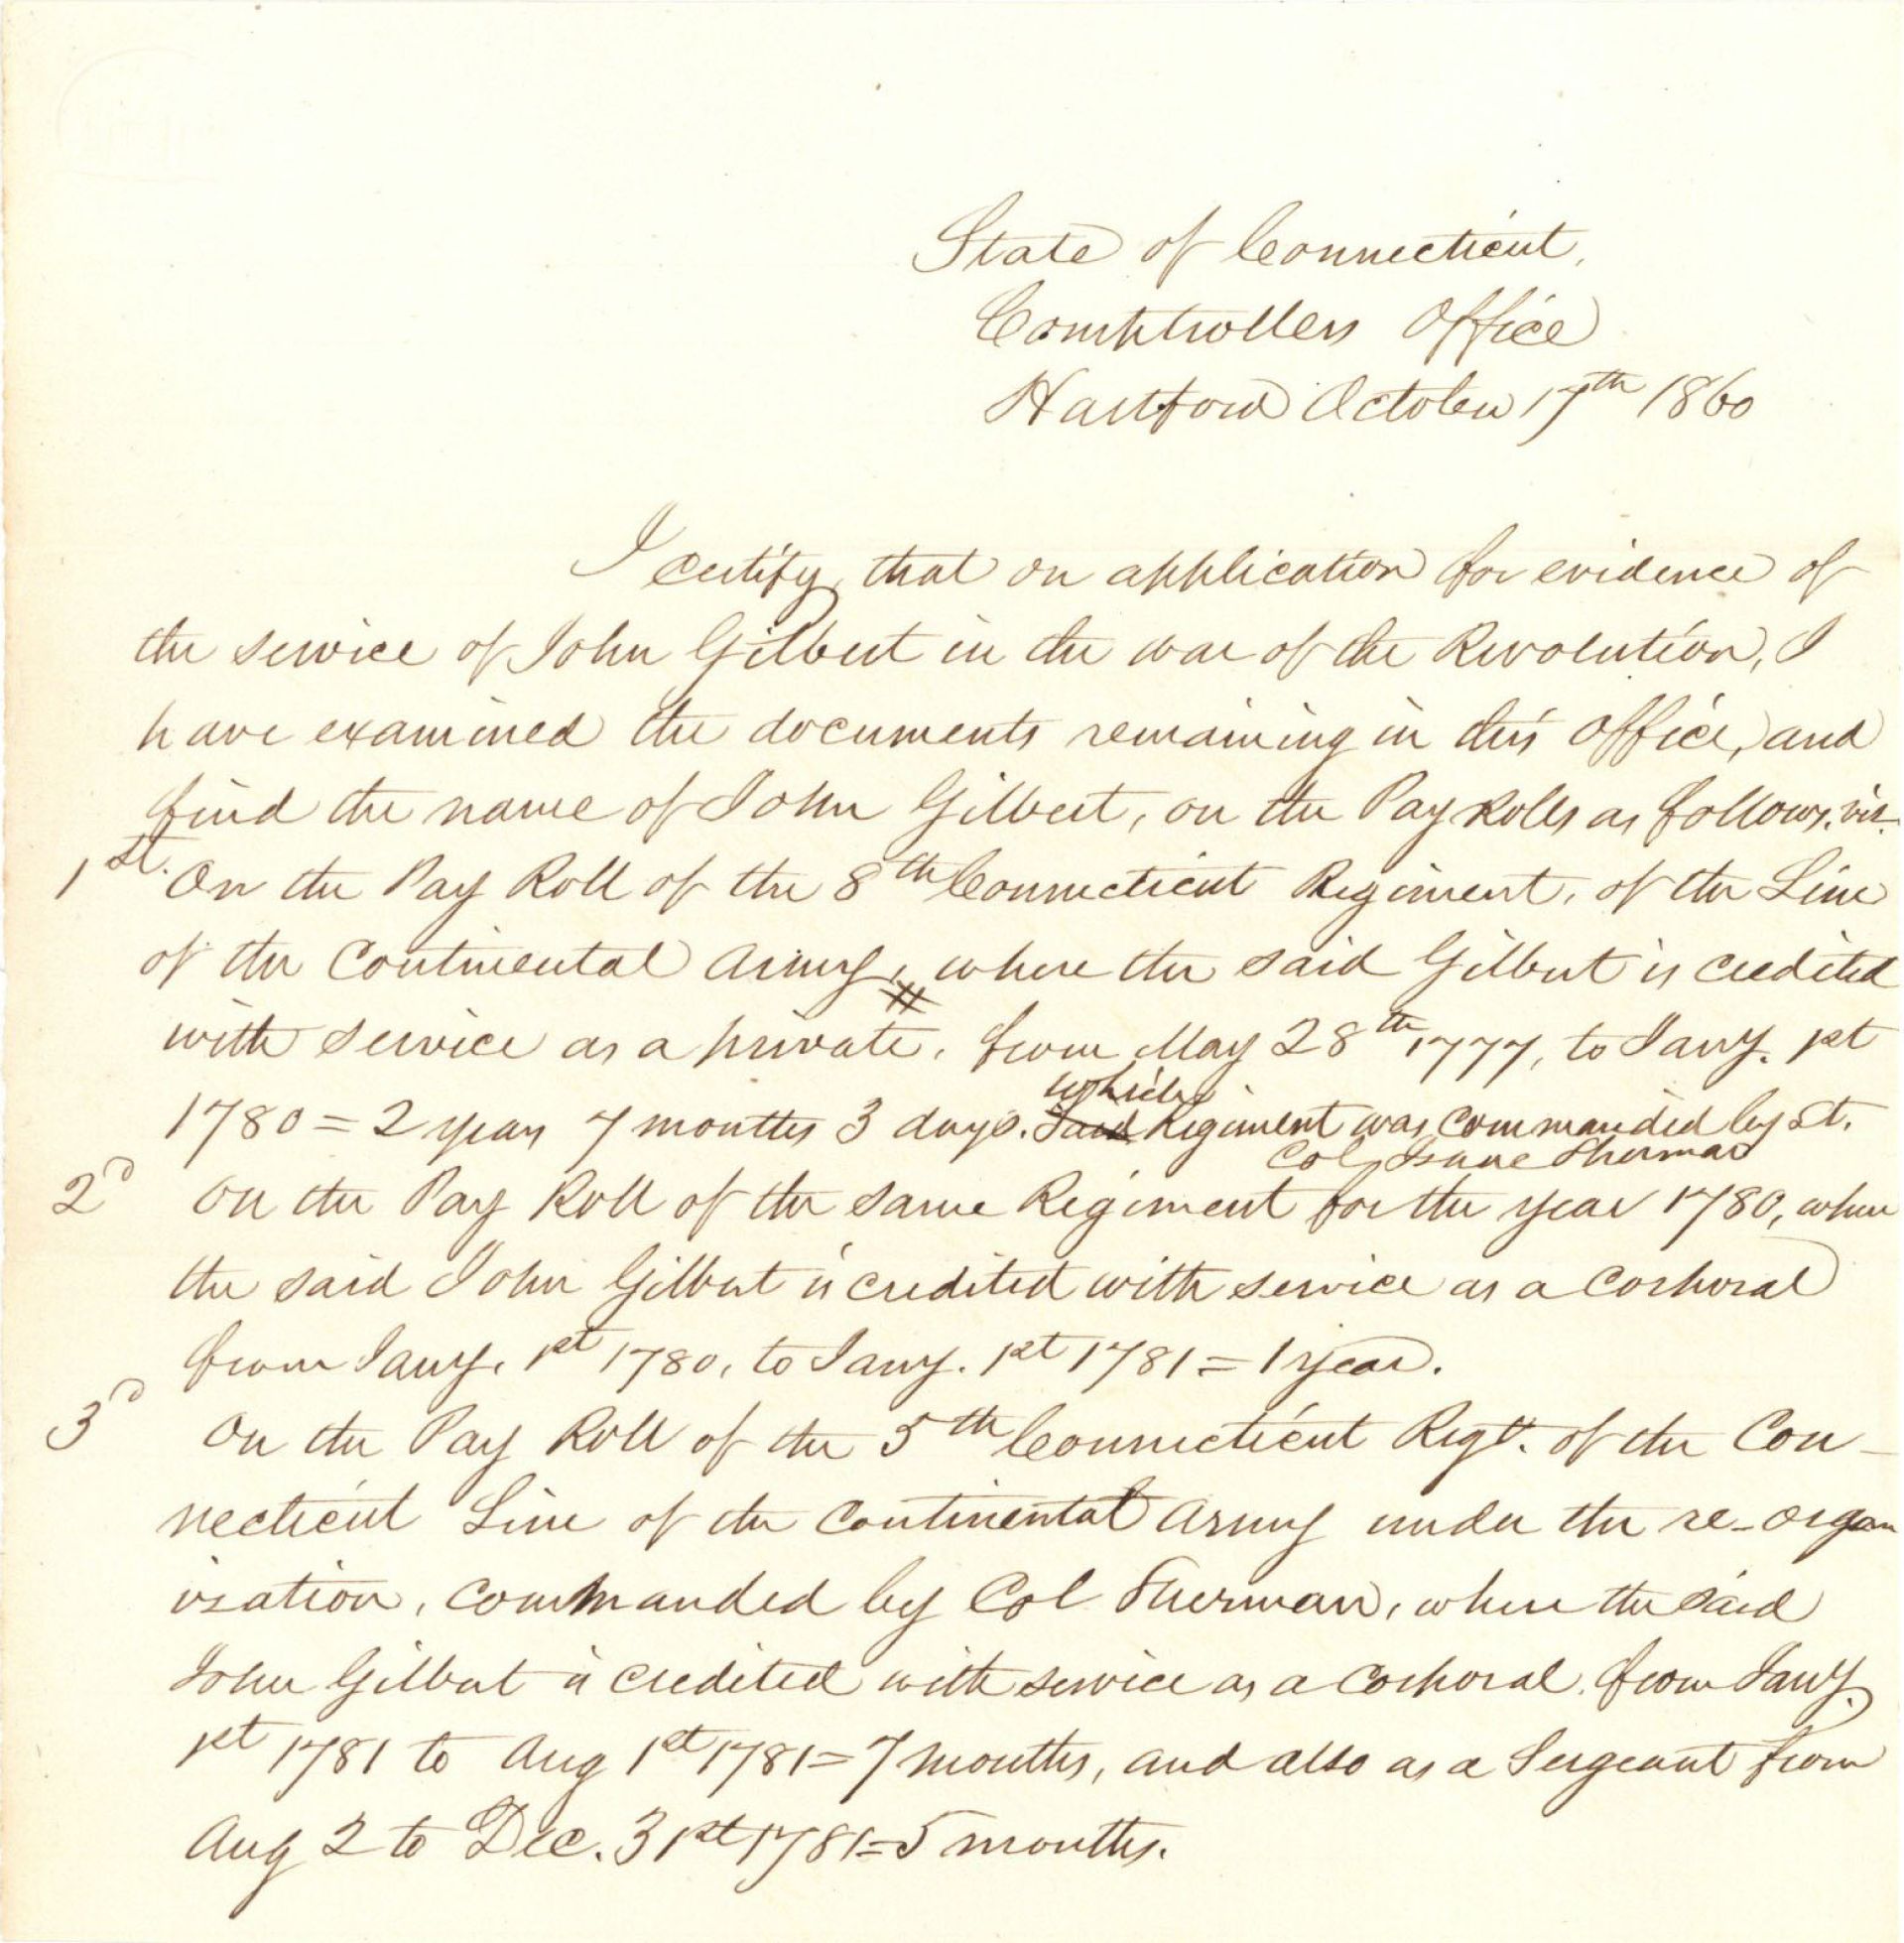 State of Connecticut,
Comptrollers Office
Hartford October 17th 1860
I certify, that on application for evidence of
the service of John Gilbert in the war of the Revolution, I
have examined the documents remaining in this office, and
find the name of John Gilbert, on the Pay Rolls as follows, viz.
1st. On the Pay Roll of the 8th Connecticut Regiment, of the Line
of the Continental Army, # where the said Gilbert is credited
with service as a private, from May 28th 1777, to Jany. 1st
which
1780 = 2 years 7 months 3 days. Said Regiment was commanded by Lt.
Col. Isaac Sherman
2d On the Pay Roll of the same Regiment for the year 1780, where
the said John Gilbert is credited with service as a Corporal
from Jany. 1st 1780, to Jany. 1st 1781 = 1 year.
3d On the Pay Roll of the 5th Connecticut Regt. of the Con-
necticut Line of the Continental Army under the re-organ
ization, commanded by Col Sherman, where the said
John Gilbert is credited with service as a Corporal from Jany.
1st 1781 to Aug 1st 1781 = 7 months, and also as a Sergeant from
Aug 2 to Dec. 31st 1781 = 5 months.